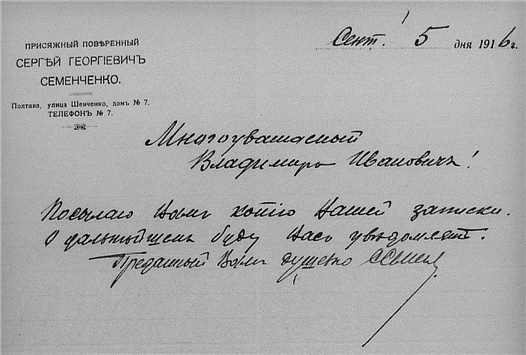 ПРИСЯЖНЫЙ ПОВѢРЕННЫЙ
СЕРГѢЙ ГЕОРГІЕВИЧЪ
СЕМЕНЧЕНКО.
Полтава, улица Шевченко, домъ № 7.
ТЕЛЕФОНЪ № 7.
Сент. 5 дня 1916 г.
Многоуважаемый
Владимиръ Ивановичъ!
Посылаю Вамъ копію Вашей записки.
О дальнѣйшемъ буду Васъ увѣдомлять.
Преданный Вамъ душевно